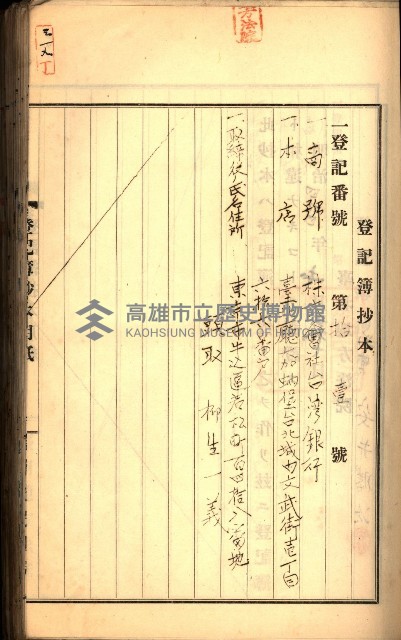 登記簿抄本
一登記番號 第拾壹號
一商號 株式會社台湾銀行
一本店 臺北廳大加蚋堡台北城内文武街壱丁目
六拾番戸
一、取締役氏名住所
東京市牛込區若松町百四拾八番地
頭取 柳生一義
高雄市立歷史博物館
KAOHSIUNG MUSEUM OF HISTORY
登記簿抄本用紙